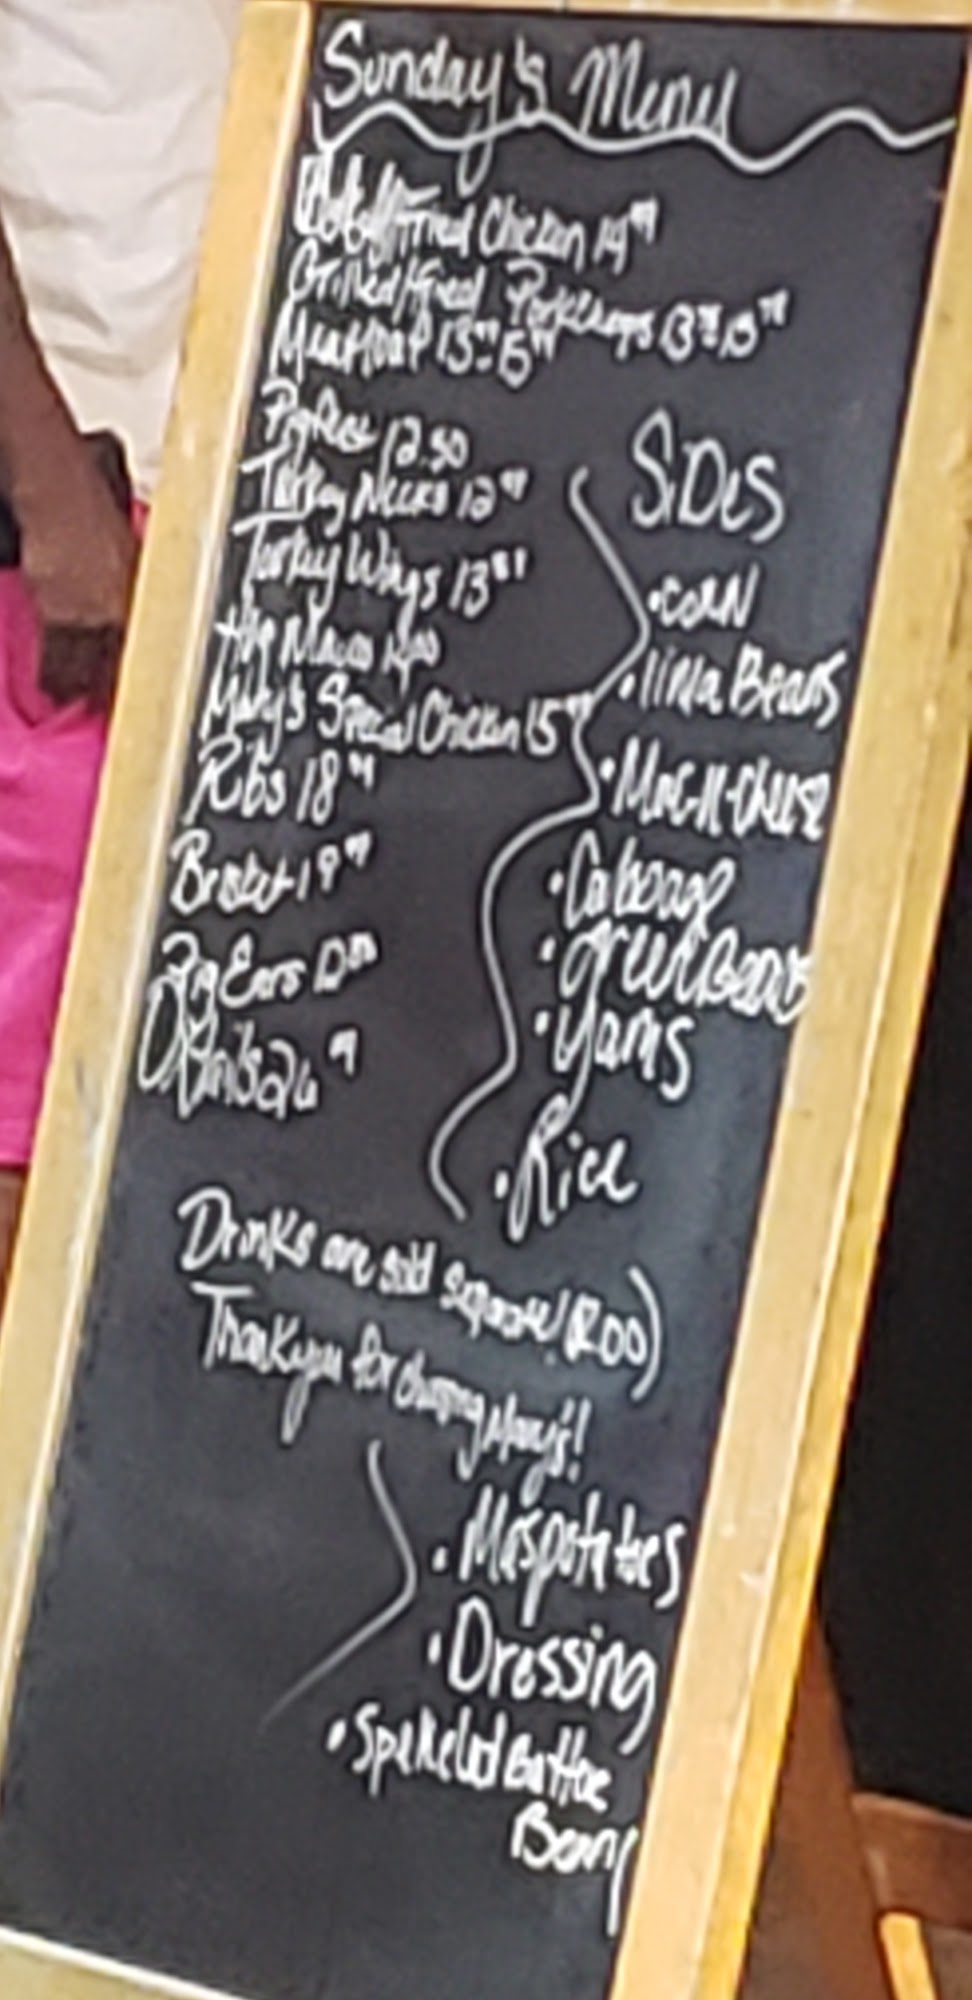 Sunday's Menu
Fried Chicken 14
Grilled/Fried Porkchops 13
Meatloaf 13
Pig Feet 12.50
Turkey Necks 12
Turkey Wings 13
Hog Maws
Mary's Special Chicken 15
Ribs 18
Brisket 19
Pig Ears
OxTails
SiDes
• CORN
• lima Beans
• Mac-N-Cheese
• Cabbage
• green Beans
• Yams
• Rice
Drinks are sold separate! (2.00)
Thank you for choosing Mary's!
• Maspotatoes
• Dressing
• Spekeled Butter
Bean